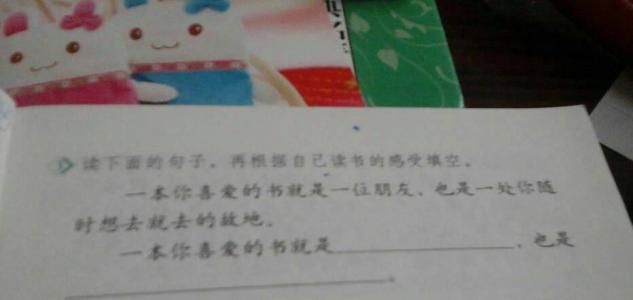 读下面的句子，再根据自己读书的感受填空。
一本你喜爱的书就是一位朋友，也是一处你随
时想去就去的故地。
一本你喜爱的书就是＿＿＿＿＿＿＿＿，也是
＿＿＿＿＿＿＿＿＿＿＿＿。